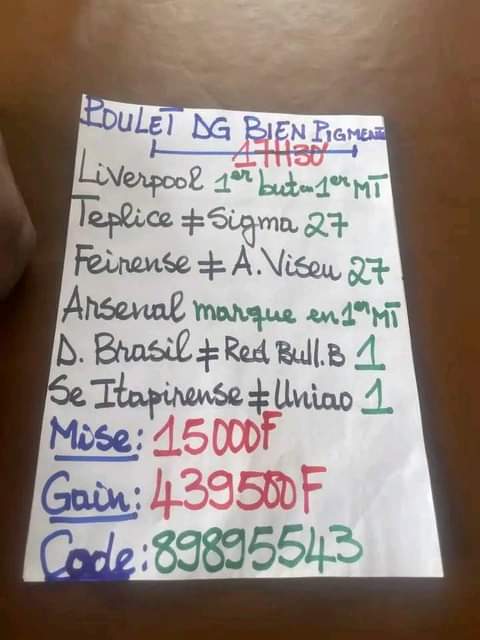 POULET DG BIEN PIGMENTÉ
17H30
Liverpool 1er but=1er MT
Teplice ≠ Sigma 27
Feirense ≠ A. Viseu 27
Arsenal marque en 1er MT
D. Brasil ≠ Red Bull.B 1
Se Itapirense ≠ Uniao 1
Mise: 15000F
Gain: 439500F
Code: 89895543